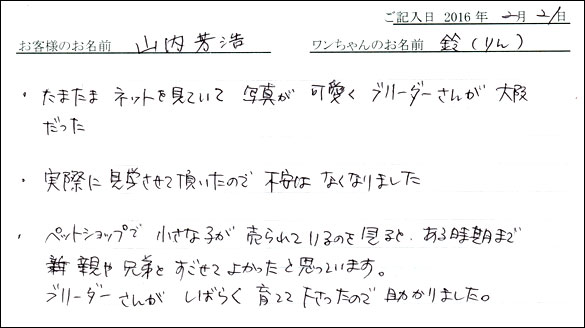 ご記入日 2016 年 2月 21日
お客様のお名前 山内芳浩 ワンちゃんのお名前 鈴(りん)
・ たまたま ネットを見ていて 写真が 可愛く ブリーダーさんが 大阪
だった
・ 実際に 見学させて頂いたので 不安は なくなりました
・ ペットショップで 小さな子が 売られているのを 見ると、ある時期まで
親や 兄弟と すごせて よかったと 思っています。
ブリーダーさんが しばらく 育てて 下さったので 助かりました。